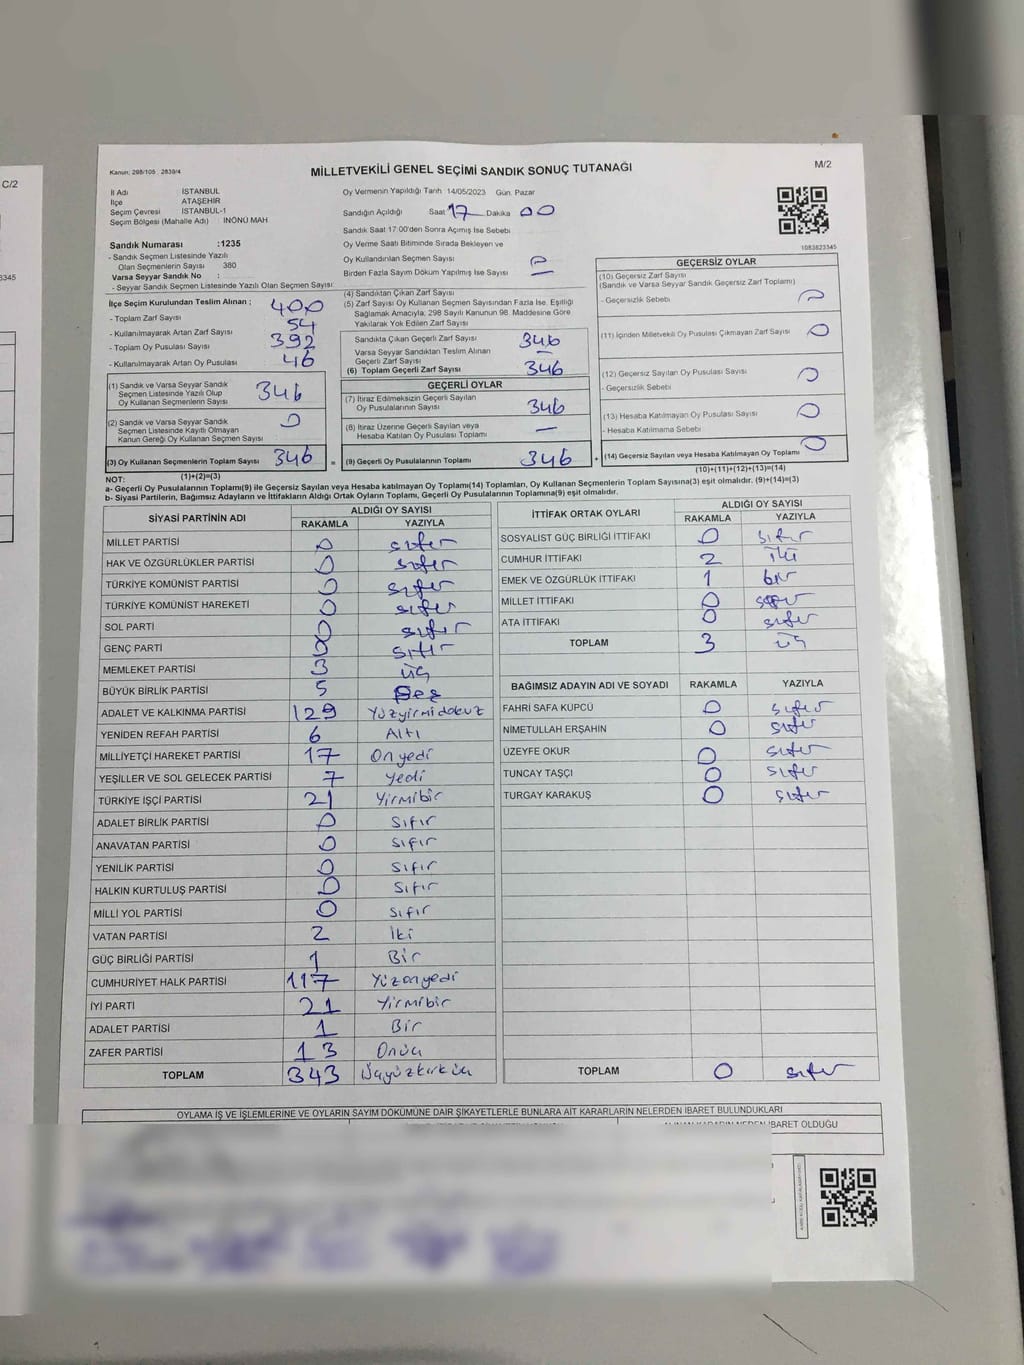 C/2
3345
Kanun: 298/105 2839/4
MİLLETVEKİLİ GENEL SEÇİMİ SANDIK SONUÇ TUTANAĞI
M/2
İl Adı İSTANBUL
İlçe ATAŞEHİR
Seçim Çevresi İSTANBUL-1
Seçim Bölgesi (Mahalle Adı) İNÖNÜ MAH
Sandık Numarası :1235
- Sandık Seçmen Listesinde Yazılı
Olan Seçmenlerin Sayısı 380
Varsa Seyyar Sandık No :
- Seyyar Sandık Seçmen Listesinde Yazılı Olan Seçmen Sayısı:
Oy Vermenin Yapıldığı Tarih 14/05/2023 Gün: Pazar
Sandığın Açıldığı Saat 17 Dakika 00
Sandık Saat 17:00'den Sonra Açılmış İse Sebebi
Oy Verme Saati Bitiminde Sırada Bekleyen ve
Oy Kullandırılan Seçmen Sayısı 0
Birden Fazla Sayım Döküm Yapılmış İse Sayısı —
1083823345
İlçe Seçim Kurulundan Teslim Alınan ;
- Toplam Zarf Sayısı 400
- Kullanılmayarak Artan Zarf Sayısı 54
- Toplam Oy Pusulası Sayısı 392
- Kullanılmayarak Artan Oy Pusulası 46
(1) Sandık ve Varsa Seyyar Sandık
Seçmen Listesinde Yazılı Olup
Oy Kullanan Seçmenlerin Sayısı 346
(2) Sandık ve Varsa Seyyar Sandık
Seçmen Listesinde Kayıtlı Olmayan
Kanun Gereği Oy Kullanan Seçmen Sayısı 0
(3) Oy Kullanan Seçmenlerin Toplam Sayısı 346 =
(1)+(2)=(3)
(4) Sandıktan Çıkan Zarf Sayısı
(5) Zarf Sayısı Oy Kullanan Seçmen Sayısından Fazla İse, Eşitliği
Sağlamak Amacıyla, 298 Sayılı Kanunun 98. Maddesine Göre
Yakılarak Yok Edilen Zarf Sayısı
Sandıkta Çıkan Geçerli Zarf Sayısı 346
Varsa Seyyar Sandıktan Teslim Alınan
Geçerli Zarf Sayısı —
(6) Toplam Geçerli Zarf Sayısı 346
GEÇERLİ OYLAR
(7) İtiraz Edilmeksizin Geçerli Sayılan
Oy Pusulalarının Sayısı 346
(8) İtiraz Üzerine Geçerli Sayılan veya
Hesaba Katılan Oy Pusulası Toplamı —
(9) Geçerli Oy Pusulalarının Toplamı 346 +
GEÇERSİZ OYLAR
(10) Geçersiz Zarf Sayısı
(Sandık ve Varsa Seyyar Sandık Geçersiz Zarf Toplamı)
- Geçersizlik Sebebi 0
(11) İçinden Milletvekili Oy Pusulası Çıkmayan Zarf Sayısı 0
(12) Geçersiz Sayılan Oy Pusulası Sayısı
- Geçersizlik Sebebi 0
(13) Hesaba Katılmayan Oy Pusulası Sayısı 0
- Hesaba Katılmama Sebebi
(14) Geçersiz Sayılan veya Hesaba Katılmayan Oy Toplamı 0
(10)+(11)+(12)+(13)=(14)
NOT:
a- Geçerli Oy Pusulalarının Toplamı(9) ile Geçersiz Sayılan veya Hesaba katılmayan Oy Toplamı(14) Toplamları, Oy Kullanan Seçmenlerin Toplam Sayısına(3) eşit olmalıdır. (9)+(14)=(3)
b- Siyasi Partilerin, Bağımsız Adayların ve İttifakların Aldığı Ortak Oyların Toplamı, Geçerli Oy Pusulalarının Toplamına(9) eşit olmalıdır.
SİYASİ PARTİNİN ADI ALDIĞI OY SAYISI
RAKAMLA YAZIYLA
MİLLET PARTİSİ 0 sıfır
HAK VE ÖZGÜRLÜKLER PARTİSİ 0 sıfır
TÜRKİYE KOMÜNİST PARTİSİ 0 sıfır
TÜRKİYE KOMÜNİST HAREKETİ 0 sıfır
SOL PARTİ 0 sıfır
GENÇ PARTİ 0 sıfır
MEMLEKET PARTİSİ 3 üç
BÜYÜK BİRLİK PARTİSİ 5 Beş
ADALET VE KALKINMA PARTİSİ 129 Yüzyirmidokuz
YENİDEN REFAH PARTİSİ 6 Altı
MİLLİYETÇİ HAREKET PARTİSİ 17 Onyedi
YEŞİLLER VE SOL GELECEK PARTİSİ 7 Yedi
TÜRKİYE İŞÇİ PARTİSİ 21 Yirmibir
ADALET BİRLİK PARTİSİ 0 Sıfır
ANAVATAN PARTİSİ 0 Sıfır
YENİLİK PARTİSİ 0 Sıfır
HALKIN KURTULUŞ PARTİSİ 0 Sıfır
MİLLİ YOL PARTİSİ 0 Sıfır
VATAN PARTİSİ 2 İki
GÜÇ BİRLİĞİ PARTİSİ 1 Bir
CUMHURİYET HALK PARTİSİ 117 Yüzonyedi
İYİ PARTİ 21 Yirmibir
ADALET PARTİSİ 1 Bir
ZAFER PARTİSİ 13 Onüç
TOPLAM 343 Üçyüzkırküç
İTTİFAK ORTAK OYLARI ALDIĞI OY SAYISI
RAKAMLA YAZIYLA
SOSYALİST GÜÇ BİRLİĞİ İTTİFAKI 0 sıfır
CUMHUR İTTİFAKI 2 iki
EMEK VE ÖZGÜRLÜK İTTİFAKI 1 bir
MİLLET İTTİFAKI 0 sıfır
ATA İTTİFAKI 0 sıfır
TOPLAM 3 üç
BAĞIMSIZ ADAYIN ADI VE SOYADI RAKAMLA YAZIYLA
FAHRİ SAFA KÜPCÜ 0 sıfır
NİMETULLAH ERŞAHİN 0 sıfır
ÜZEYFE OKUR 0 sıfır
TUNCAY TAŞÇI 0 sıfır
TURGAY KARAKUŞ 0 sıfır
TOPLAM 0 sıfır
OYLAMA İŞ VE İŞLEMLERİNE VE OYLARIN SAYIM DÖKÜMÜNE DAİR ŞİKAYETLERLE BUNLARA AİT KARARLARIN NELERDEN İBARET BULUNDUKLARI
İBARET OLDUĞU